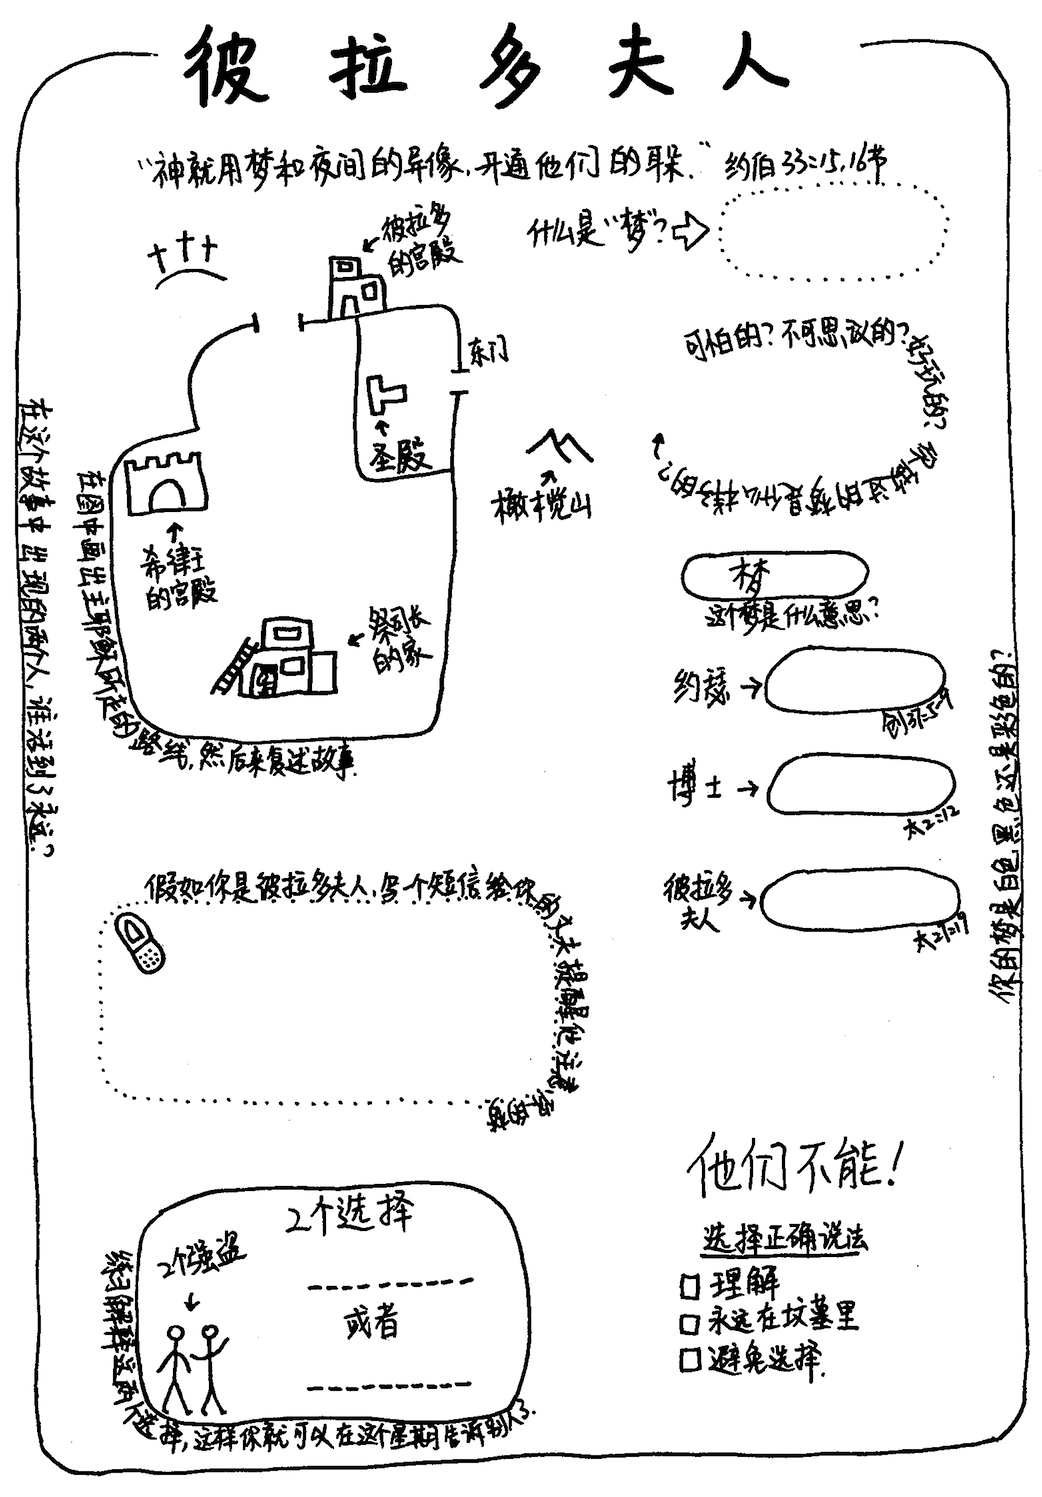 彼拉多夫人
“神就用梦和夜间的异像，开通他们的耳朵.” 约伯33:15,16节
什么是“梦”?
彼拉多
的宫殿
东门
圣殿
橄榄山
希律王
的宫殿
祭司长
的家
在图中画出主耶稣所走的路线，然后来复述故事.
在这个故事中出现的两个人，谁活到了永远?
可怕的? 不可思议的? 好玩的? 你做过的梦是什么样子的?
梦
这个梦是什么意思?
约瑟
创37:5-9
博士
太2:12
彼拉多
夫人
太27:19
你的梦是白色黑色还是彩色的?
假如你是彼拉多夫人，写个短信给你的丈夫提醒他注意你的梦
2个选择
2个强盗
或者
练习解释这两个选择，这样你就可以在这个星期告诉别人了.
他们不能!
选择正确说法
理解
永远在坟墓里
避免选择.